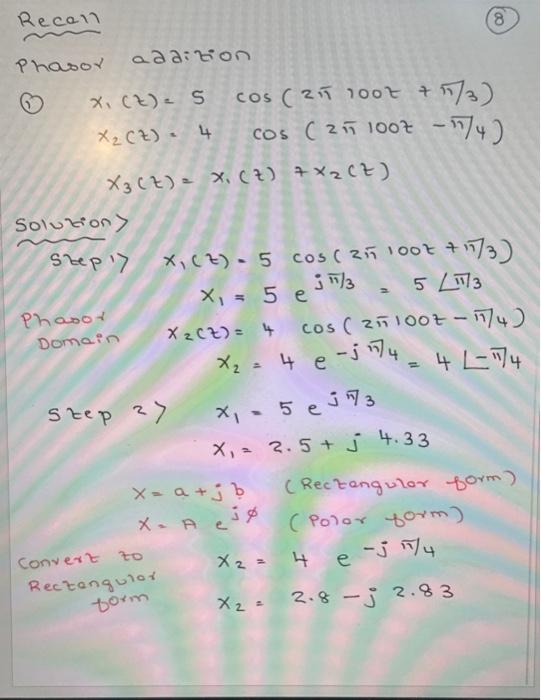 Recall
8
Phasor addition
① x₁(t) = 5 cos(2π 100t + π/3)
x₂(t) = 4 cos(2π 100t - π/4)
x₃(t) = x₁(t) + x₂(t)
Solution>
Step 1> x₁(t) = 5 cos(2π 100t + π/3)
X₁ = 5 e^{jπ/3} = 5 ∠π/3
Phasor Domain
x₂(t) = 4 cos(2π100t - π/4)
X₂ = 4 e^{-jπ/4} = 4 ∠-π/4
Step 2> X₁ = 5 e^{jπ/3}
X₁ = 2.5 + j 4.33
X = a + j b (Rectangular form)
X = A e^{jφ} (Polar form)
Convert to Rectangular form
X₂ = 4 e^{-jπ/4}
X₂ = 2.8 - j 2.83